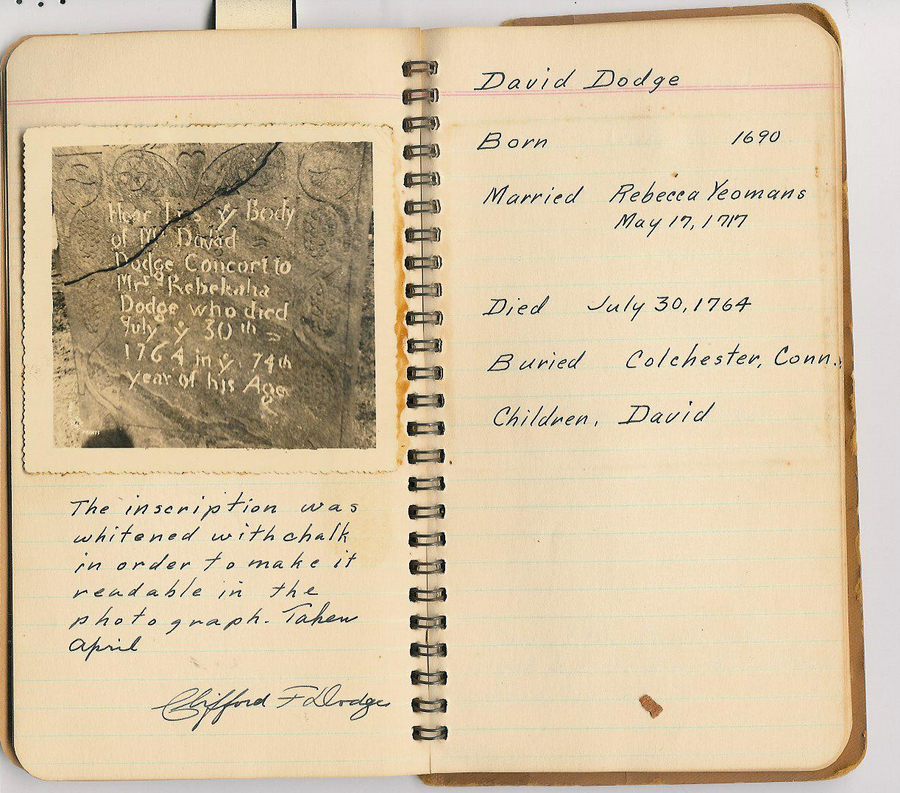 Hear Lies ẏ Body
of Mr David
Dodge Concort to
Mrs Rebekaha
Dodge who died
July ẏ 30th
1764 in ẏ 74th
year of his Age
The inscription was
whitened with chalk
in order to make it
readable in the
photograph. Taken
April
Clifford F Dodge
David Dodge
Born 1690
Married Rebecca Yeomans
May 17, 1717
Died July 30, 1764
Buried Colchester, Conn.
Children, David